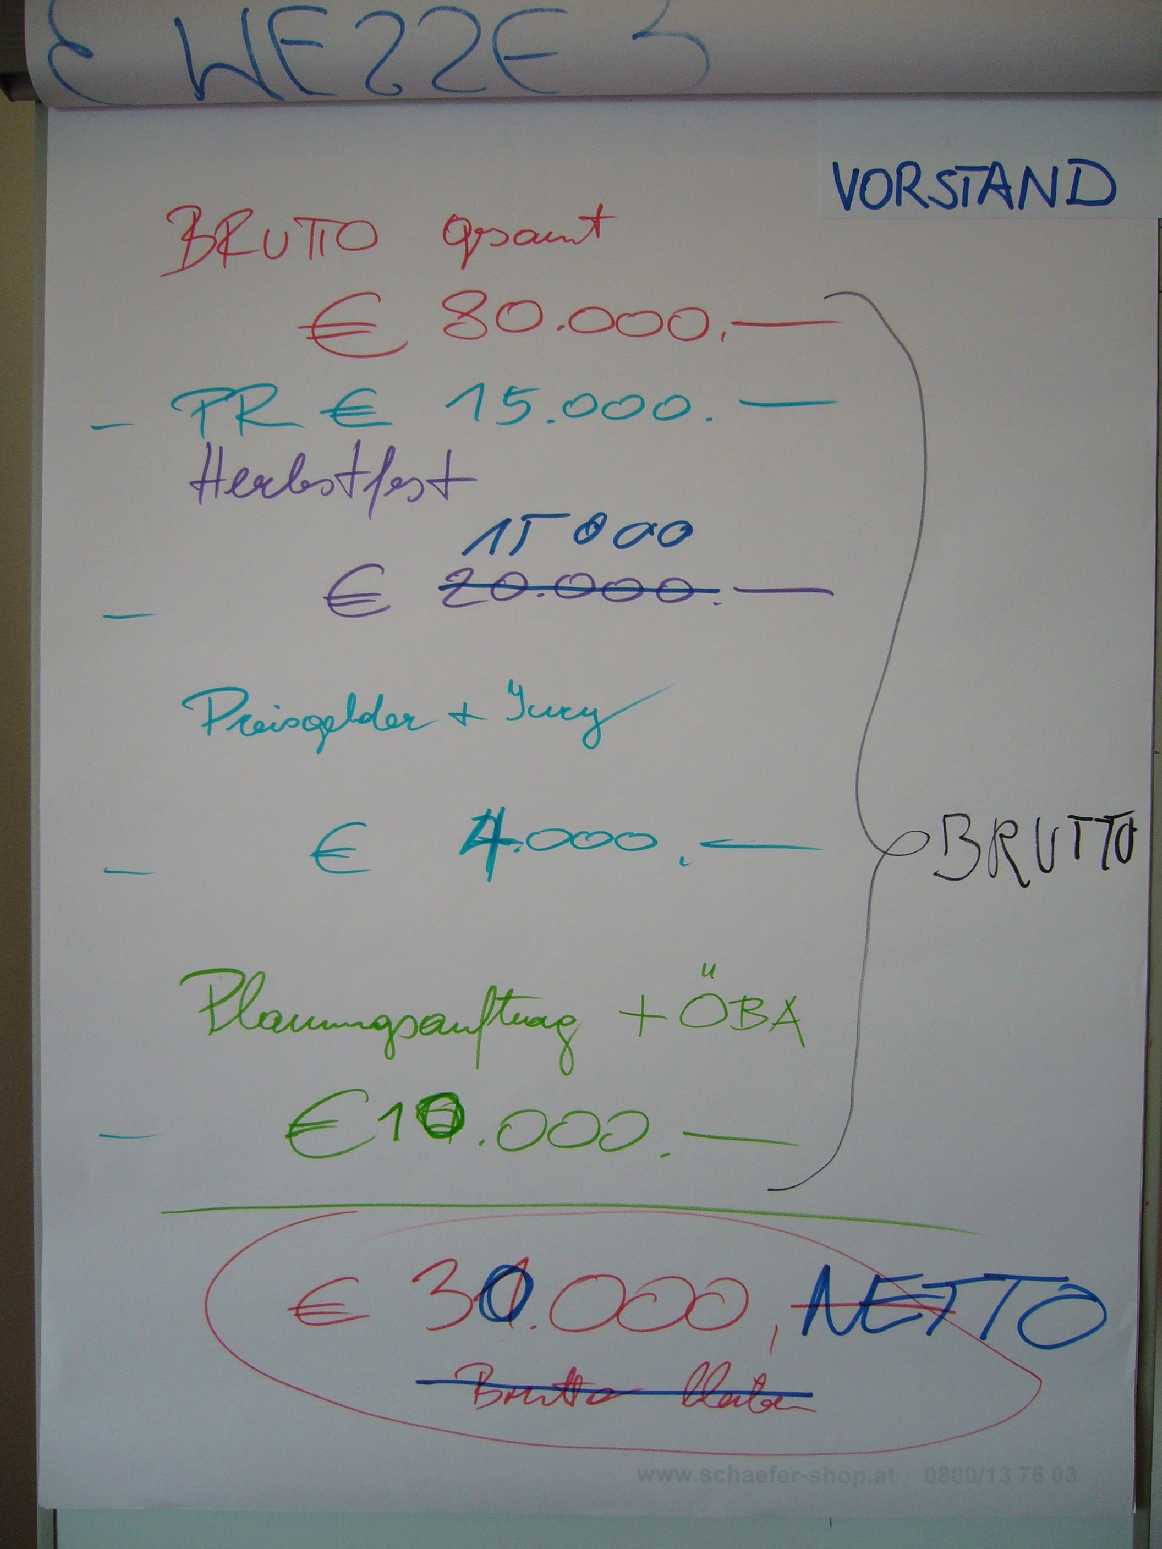 WEZZE
VORSTAND
BRUTTO gesamt
€ 80.000.—
– PR € 15.000.—
Herbstfest
15 000
– € 20.000.—
Preisgelder + Jury
– € 4.000.—
BRUTTO
Planungsauftrag + ÖBA
– € 10.000.—
€ 30.000, NETTO
Brutto bleiben
www.schaefer-shop.at 0800/13 76 03